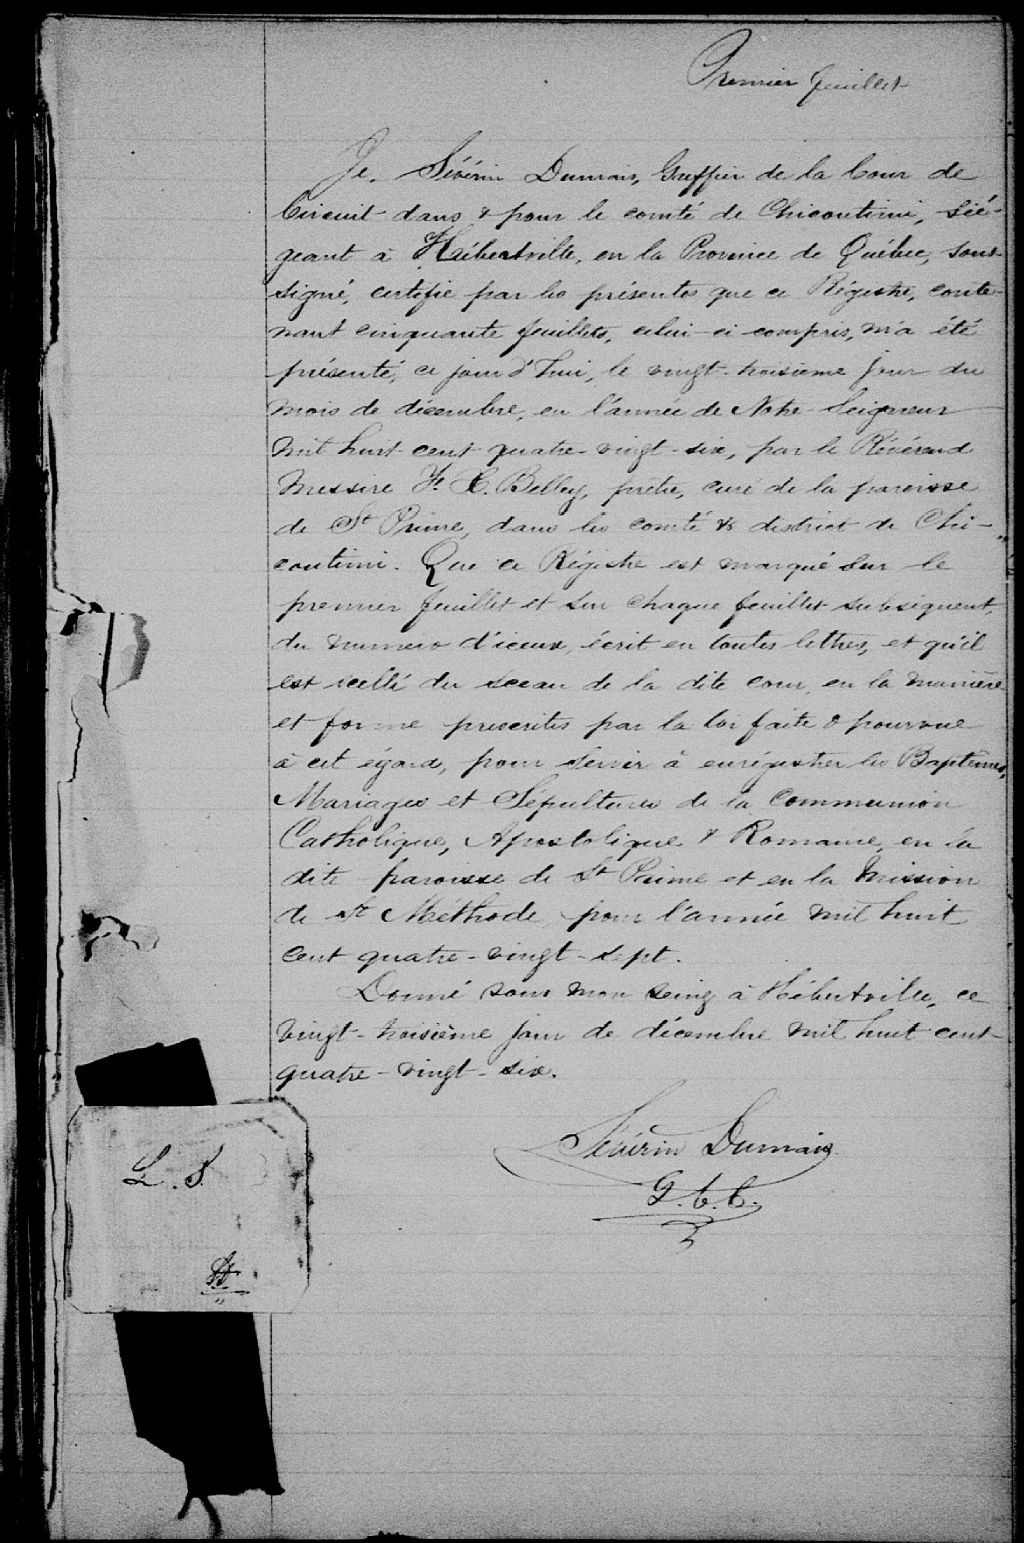 Premier feuillet
Je, Sévérin Dumais, Greffier de la Cour de
Circuit dans & pour le comté de Chicoutimi, sié-
geant à Hébertville, en la Province de Québec, sous-
signé, certifie par les présentes que ce Régistre, conte-
nant cinquante feuillets, celui-ci compris, m'a été
présenté, ce jour d'hui, le vingt-troisième jour du
mois de décembre, en l'année de Notre Seigneur
mil huit cent quatre-vingt-six, par le Révérend
Messire F. X. Belley, prêtre, curé de la paroisse
de St Prime, dans les comté & district de Chi-
coutimi. Que ce Régistre est marqué sur le
premier feuillet et sur chaque feuillet subséquent,
du numero d'iceux, écrit en toutes lettres, et qu'il
est scellé du sceau de la dite cour, en la manière
et forme prescrites par la loi faite & pourvue
à cet égard, pour servir à enrégistrer les Baptêmes,
Mariages et Sépultures de la Communion
Catholique, Apostolique & Romaine, en la
dite paroisse de St Prime et en la Mission
de St Méthode, pour l'année mil huit
cent quatre-vingt-sept.
Donné sous mon seing à Hébertville, ce
vingt-troisième jour de décembre mil huit cent-
quatre-vingt-six.
Sévérin Dumais
G. C. C.
L. S.